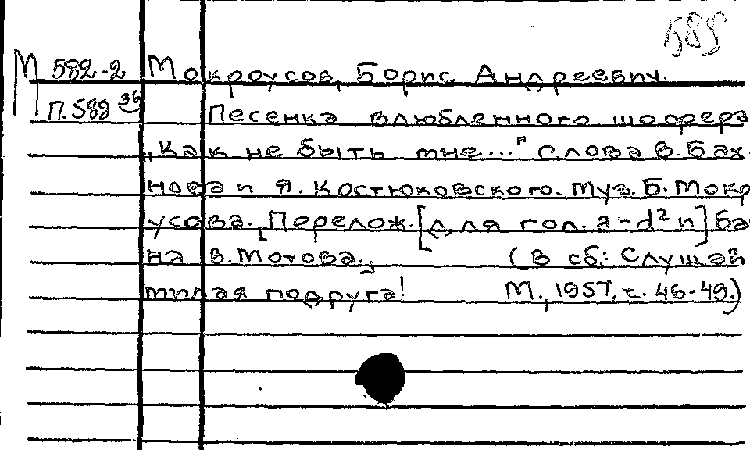 585
М 582-2 Мокроусов, Борис Андреевич.
П. 588 36 Песенка влюбленного шофера
„Как не быть мне...." Слова В. Бах-
нова и Я. Костюковского. Муз. Б. Мокр
усова. [Перелож. [для гол. a-d² и] ба
на В. Мотова.] (В сб.: Слушай
милая подруга! М., 1957, с. 46-49.)